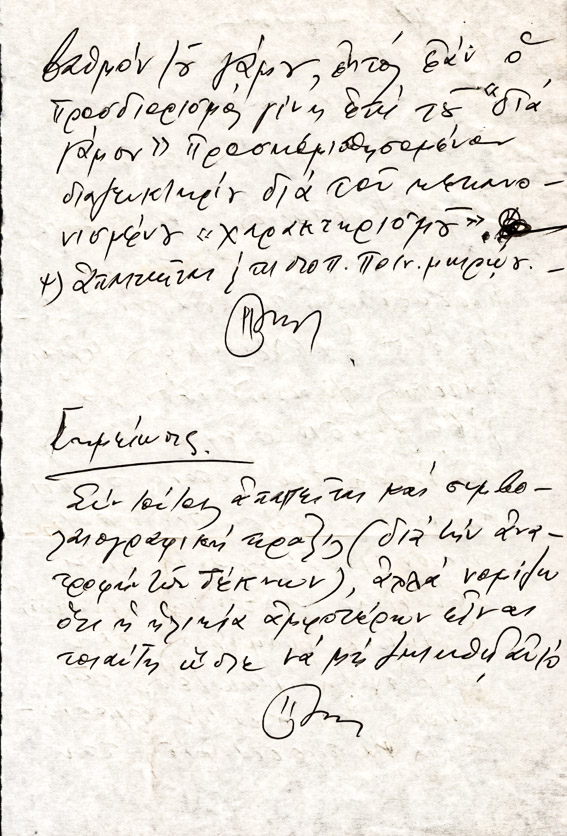 βαθμὸν τοῦ γάμου, ἐκτὸς ἐὰν ὁ
προσδιορισμὸς γίνῃ ἐπὶ τοῦ "διὰ
γάμον» προσκομισθησομένου
διαζευκτηρίου διὰ τοῦ κεκανο-
νισμένου «χαρακτηρισμοῦ».
4) Ἀπαιτεῖται πιστοπ. ποιν. μητρώου. –
Σημείωσις.
Σὺν τούτοις ἀπαιτεῖται καὶ συμβο-
λαιογραφικὴ πρᾶξις (διὰ τὴν ἀνα-
τροφὴν τῶν τέκνων), ἀλλὰ νομίζω
ὅτι ἡ ἡλικία ἀμφοτέρων εἶναι
τοιαύτη ὥστε νὰ μὴ αὐτό